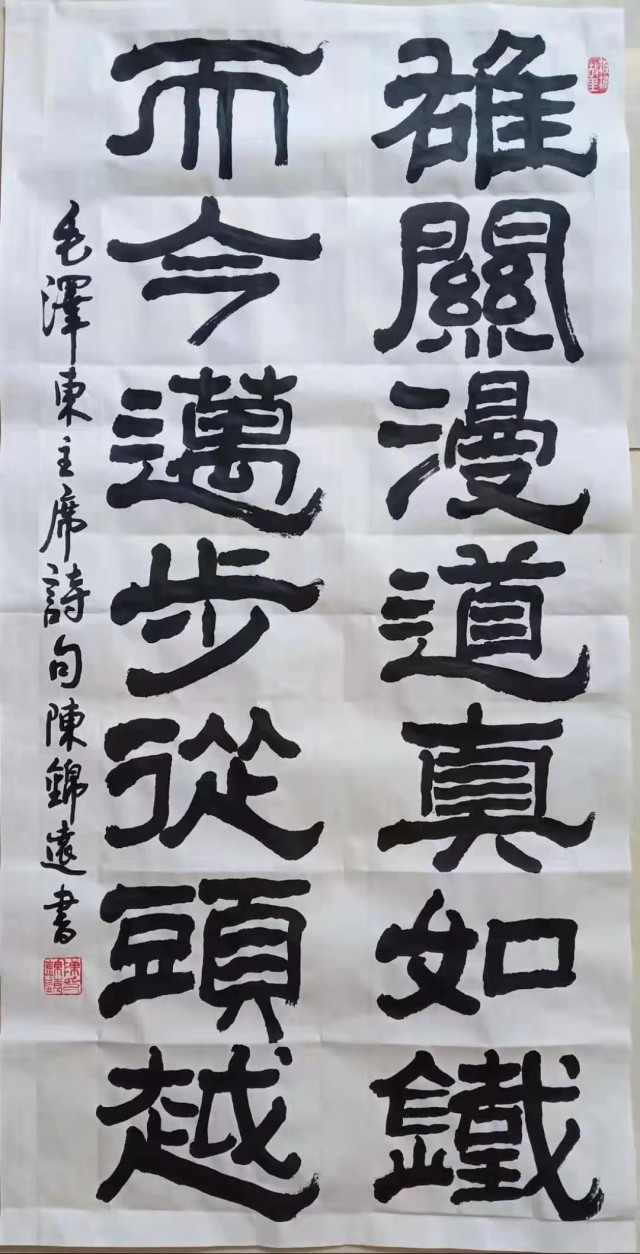 雄關漫道真如鐵
而今邁步從頭越
毛澤東主席詩句陳錦遠書